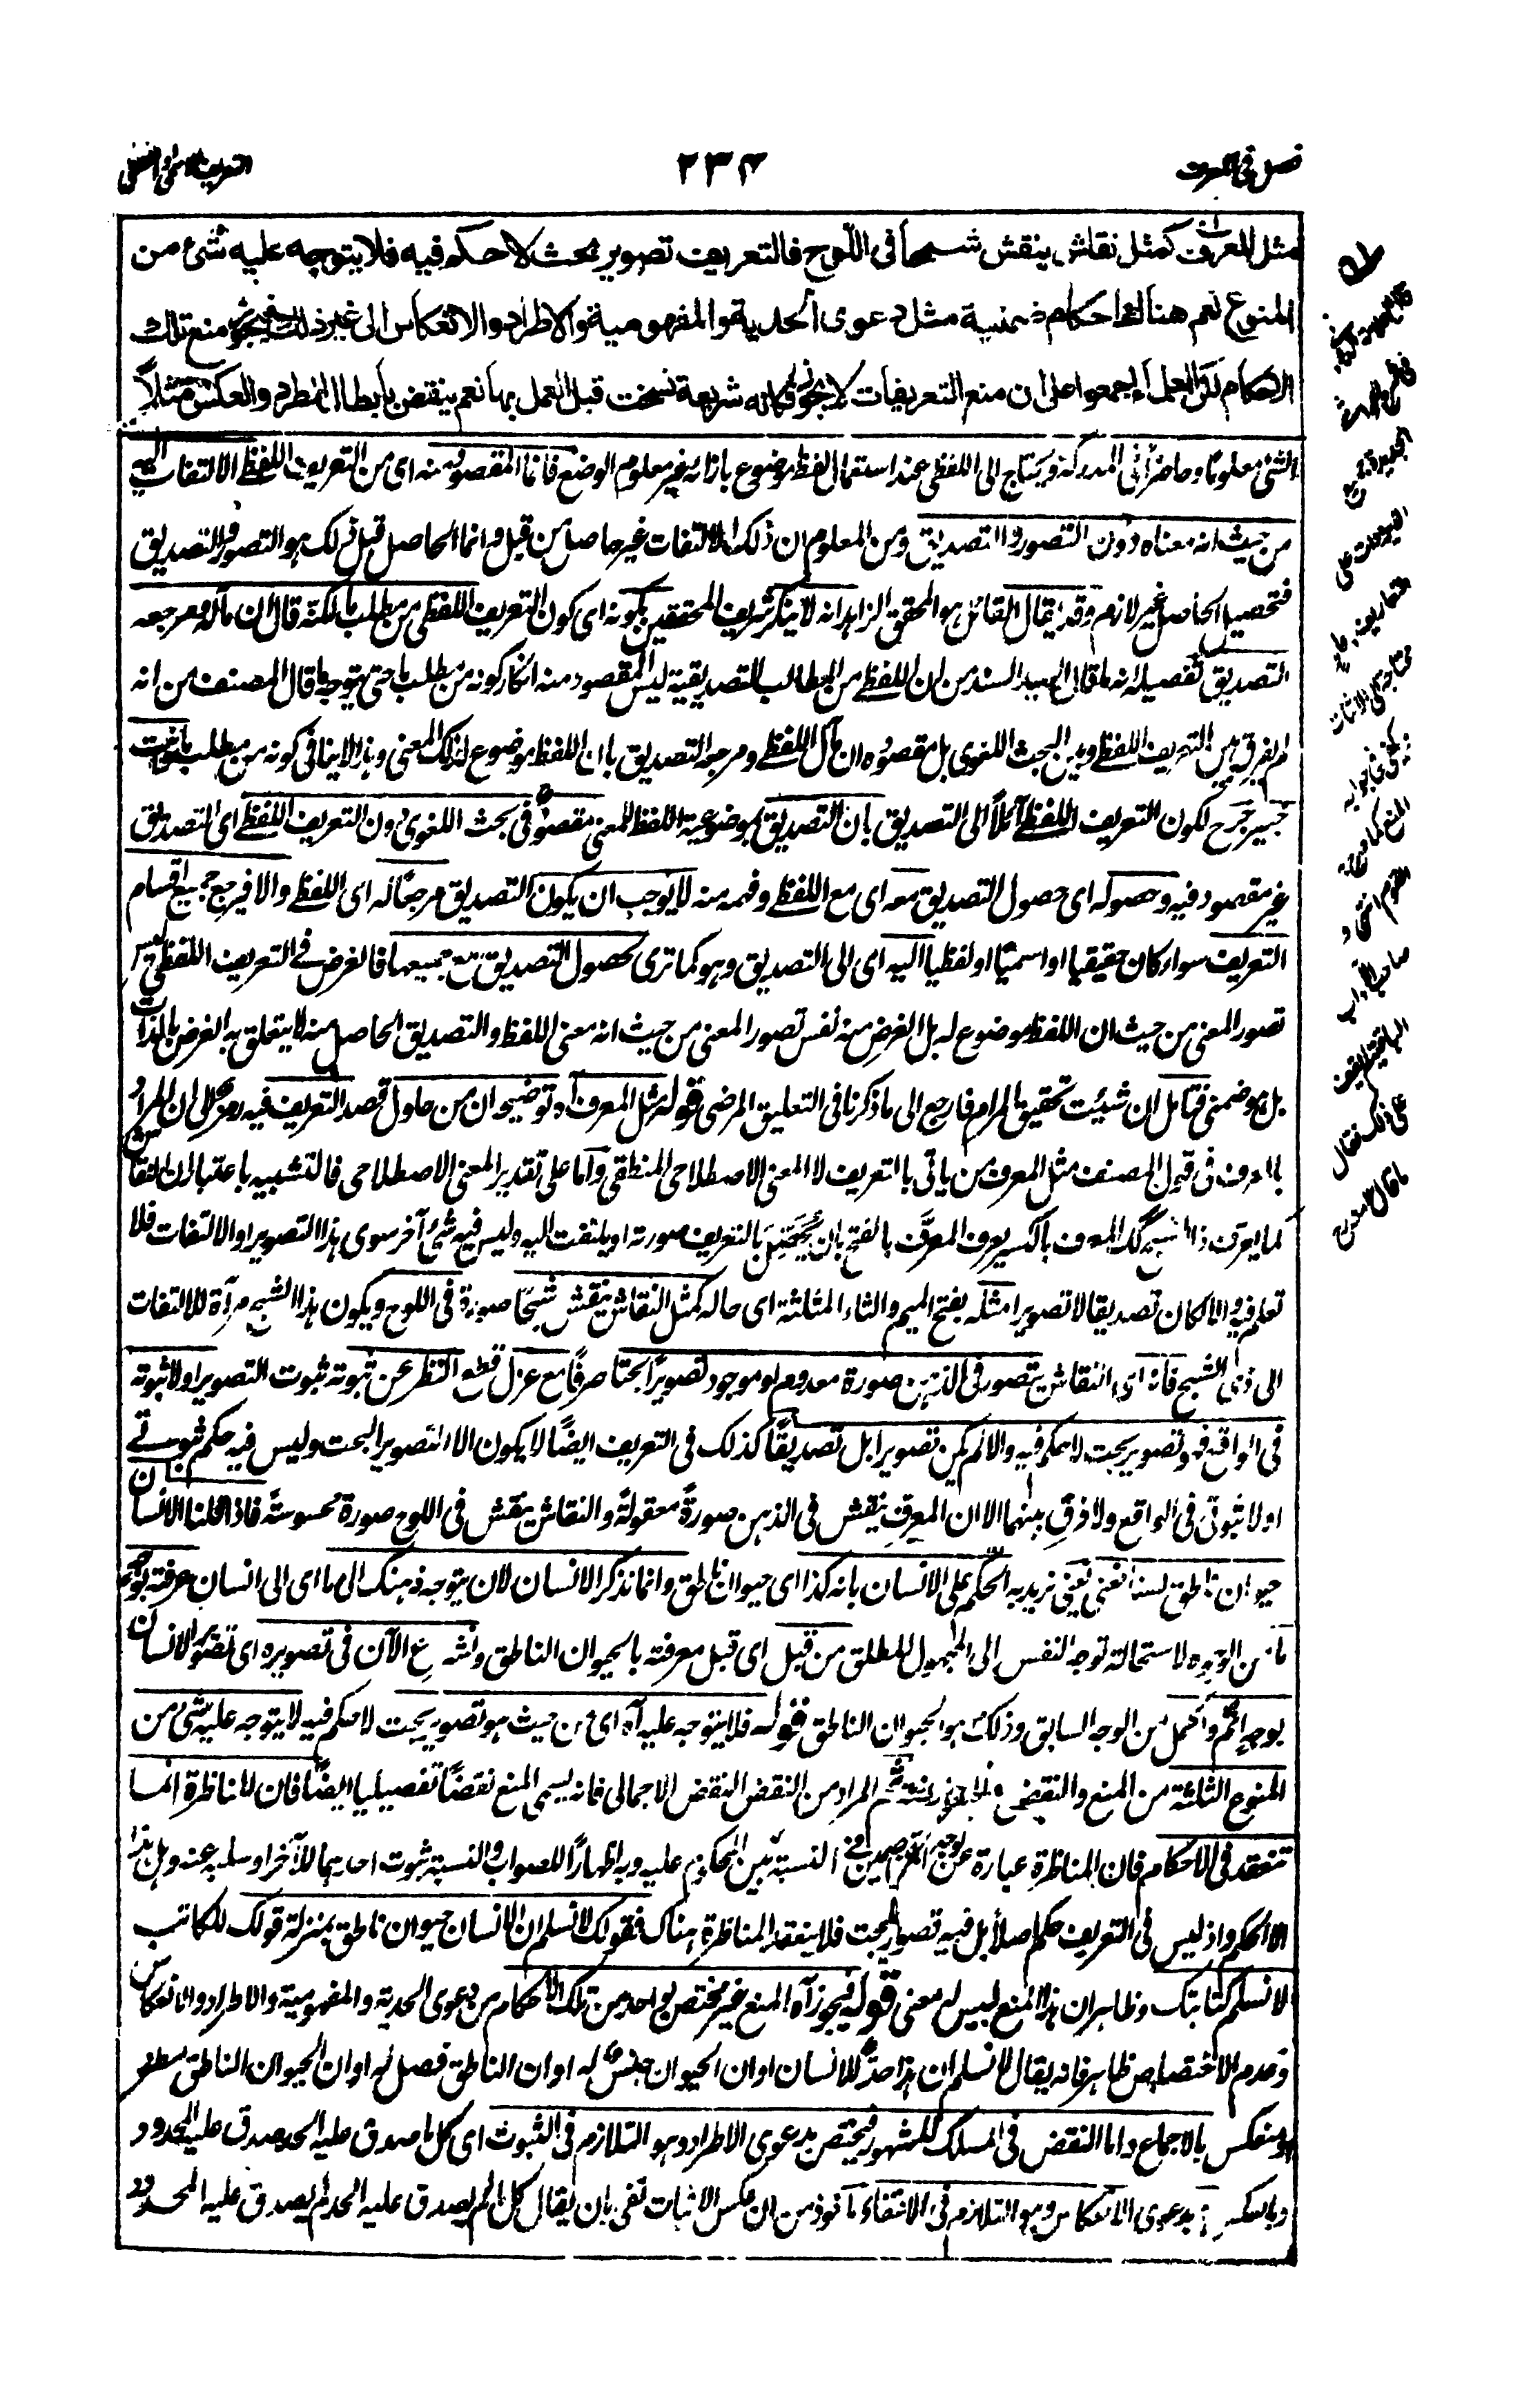 فصل فی المعرف
۲۳۴
التعریف الاسمی واللفظی
مثل المعرف کمثل نقاش ینقش شبحا فی اللوح فالتعریف تصویر بحت لا حکم فیه فلا یتوجه علیه شئ من
المنوع نعم هناک احکام ضمنیة مثل دعوی الحدیة والمفهومیة والاطراد والانعکاس الی غیر ذلک فیجوز منع تلک
الاحکام لکن العلماء اجمعوا علی ان منع التعریفات لا یجوز فکانه شریعة نسخت قبل العمل بها نعم ینقض بابطال الطرد والعکس مثلاً
الشئ معلوما وحاضرا فی المدرکة ویحتاج الی اللفظی عند استعمال لفظ موضوع بازائه غیر معلوم الوضع فانما المقصود منه ای من التعریف اللفظی الالتفات الیه
من حیث انه معناه دون التصور والتصدیق ومن المعلوم ان ذلک الالتفات غیر حاصل من قبل وانما الحاصل قبل ذلک هو التصور والتصدیق
فتحصیل الحاصل غیر لازم وقد یقال القائل هو المحقق الزاهد انه لا ینکر شریف المحققین بکونه ای کون التعریف اللفظی من مطلب ما لکنه قال ان مآله ومرجعه
التصدیق تفصیله انه ما قال السید السند من ان اللفظی من المطالب التصدیقیة لیس المقصود منه انکار کونه من مطلب ما حتی یتوجه ما قال المصنف من انه
لم یفرق بین التعریف اللفظی وبین البحث اللغوی بل مقصوده ان مآل اللفظی ومرجعه التصدیق بان اللفظ موضوع لذلک المعنی وهذا لا ینافی کونه من مطلب ما
خبیر جرح لکون التعریف اللفظی آئلا الی التصدیق بان التصدیق بموضوعیة اللفظ للمعنی مقصود فی بحث اللغوی دون التعریف اللفظی ای التصدیق
غیر مقصود فیه وحصوله ای حصول التصدیق معه ای مع اللفظی وفهمه منه لا یوجب ان یکون التصدیق مرجعا له ای اللفظی والا فیرجع جمیع اقسام
التعریف سواء کان حقیقیا او اسمیا او لفظیا الیه ای الی التصدیق وهو کما تری لحصول التصدیق مع جمیعها فالغرض فی التعریف اللفظی لیس
تصور المعنی من حیث ان اللفظ موضوع له بل الغرض منه نفس تصور المعنی من حیث انه معنی اللفظ والتصدیق الحاصل منه لا یتعلق به الغرض بالذات
بل هو ضمنی فتامل ان شئت تحقیق المرام فارجع الی ما ذکرنا فی التعلیق المرضی قوله مثل المعرف آه توضیحه ان من حاول قصد التعریف فیه رمز الی ان المراد
بالمعرف فی قول المصنف مثل المعرف من یاتی بالتعریف لا المعنی الاصطلاحی المنطقی واما علی تقدیر المعنی الاصطلاحی فالتشبیه باعتبار ان النقاش
کما یعرف ذا الشبح کذلک المعرف بالکسر یعرف المعرَّف بالفتح بان یحصل بالتعریف صورته او یلتفت الیه ولیس فیه شئ آخر سوی هذا التصویر او الالتفات فلا
تعلم فیه والا لکان تصدیقا لا تصویرا مثله بفتح المیم والثاء المثلثة ای حاله کمثل النقاش ینقش شبحا صورة فی اللوح ویکون هذا الشبح مرآة للالتفات
الی ذی الشبح فانه ای النقاش یتصور فی الذهن صورة معدوم او موجود تصویرا بحتا صرفا مع عزل قطع النظر عن ثبوته ثبوت التصویر او لا ثبوته
فی الواقع فهو تصویر بحت لا حکم فیه والا لم یکن تصویرا بل تصدیقا کذلک فی التعریف ایضا لا یکون الا التصویر البحت ولیس فیه حکم ثبوتی
او لا ثبوتی فی الواقع ولا فرق بینهما الا ان المعرف ینقش فی الذهن صورة معقولة والنقاش ینقش فی اللوح صورة محسوسة فاذا قلنا الانسان
حیوان ناطق لسنا نعنی یعنی نرید به الحکم علی الانسان بانه کذا ای حیوان ناطق وانما نذکر الانسان لان یتوجه ذهنک الی ما ای الی انسان عرفته بوجه
ما من الوجوه لاستحالة توجه النفس الی المجهول المطلق من قبل ای قبل معرفته بالحیوان الناطق ونشرع الآن فی تصویره ای تصویر الانسان
بوجه اتم واکمل من الوجه السابق وذلک هو الحیوان الناطق قوله فلا یتوجه علیه آه ای من حیث هو تصویر بحت لا حکم فیه لا یتوجه علیه شئ من
المنوع الثلثة من المنع والنقض والمعارضة ثم المراد من النقض النقض الاجمالی فانه یسمی المنع نقضا تفصیلیا ایضا فان المناظرة انما
تنعقد فی الاحکام فان المناظرة عبارة عن توجه المتخاصمین فی النسبة بین المحکوم علیه وبه اظهارا للصواب والنسبة ثبوت احدیهما للآخر او سلبه عنه وهل هذا
الا الحکم واذ لیس فی التعریف حکم اصلا بل فیه تصویر بحت فلا ینعقد المناظرة هناک فقولک لا نسلم ان الانسان حیوان ناطق بمنزلة قولک للکاتب
لا نسلم کتابتک وظاهر ان هذا المنع لیس له معنی قوله فیجوز آه المنع غیر مختص بواحد من تلک الاحکام من دعوی الحدیة والمفهومیة والاطراد والانعکاس
وعدم الاختصاص ظاهر فانه یقال لا نسلم ان هذا حد للانسان او ان الحیوان جنس له او ان الناطق فصل له او ان الحیوان الناطق مطرد
او منعکس بالاجماع واما النقض فی المسلک المشهور فیختص بدعوی الاطراد وهو التلازم فی الثبوت ای کل ما صدق علیه الحد صدق علیه المحدود
وبالعکس بدعوی الانعکاس وهو التلازم فی الانتفاء ماخوذ من ان عکس الاثبات نفی بان یقال کل ما لم یصدق علیه الحد لم یصدق علیه المحدود